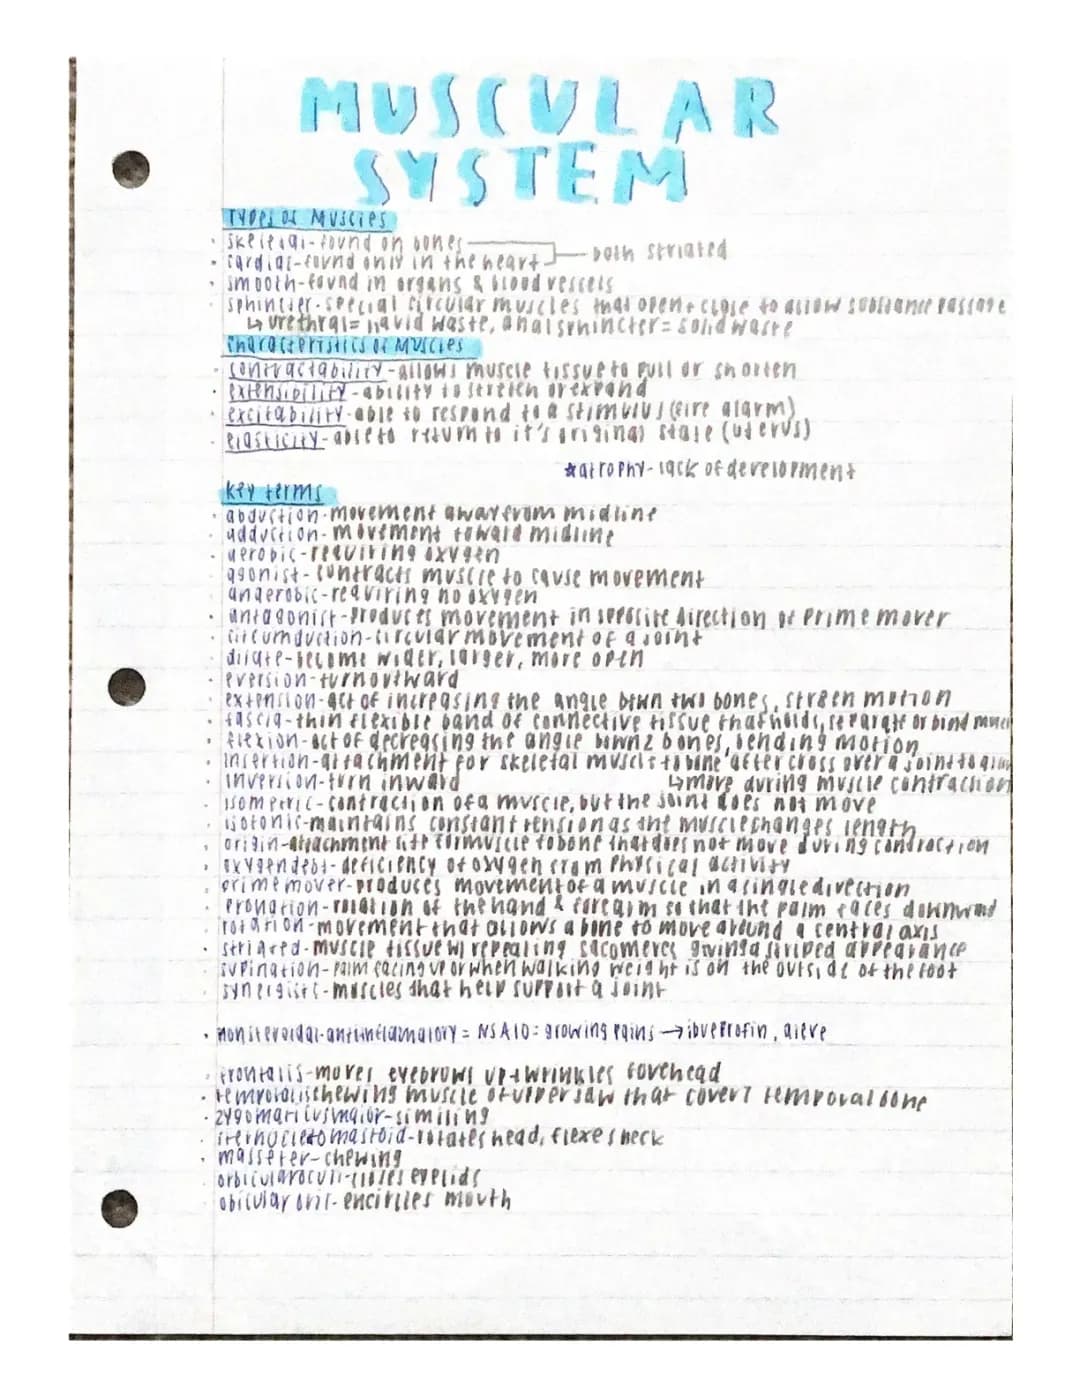 MUSCULAR
SYSTEM
Types of Muscles
· skeletal-found on bones
both striated
· cardiac-found only in the heart
· smooth-found in organs & blood vessels
· sphincter-special circular muscles that open + close to allow substance passage
↳ urethral= liquid waste, anal sphincter= solid waste
Characteristics of Muscles
· contractability-allows muscle tissue to pull or shorten
· extensibility-ability to stretch or expand
· excitability-able to respond to a stimulus (fire alarm)
· elasticity-able to return to it's original state (uterus)
*atrophy-lack of development
key terms
· abduction-movement away from midline
· adduction-movement toward midline
· aerobic-requiring oxygen
· agonist-contracts muscle to cause movement
· anaerobic-requiring no oxygen
· antagonist-produces movement in opposite direction of prime mover
· circumduction-circular movement of a joint
· dilate-become wider, larger, more open
· eversion-turn outward
· extension-act of increasing the angle btwn two bones,
motion
· fascia-thin flexible band of connective tissue that holds, separate or bind
· flexion-act of decreasing the angle
2 bones, bending motion
· insertion-attachment for skeletal muscle to bone after cross over a joint to
· inversion-turn inward
↳move during muscle contraction
· isometric-contraction of a muscle, but the joint does not move
· isotonic-maintains constant tension as the muscle changes length
· origin-attachment site for muscle to bone that does not move during contraction
· oxygen debt-deficiency of oxygen from physical activity
· prime mover-produces movement of a muscle in a single direction
· pronation-rotation of the hand & forearm so that the palm faces downward
· rotation-movement that allows a bone to move around a central axis
· striated-muscle tissue w/ repeating sacomeres giving a striped appearance
· supination-palm facing up or when walking weight is on the outside of the foot
· synergists-muscles that help support a joint
· nonsteroidal-antiinflamatory = NSAID = growing pains → ibuprofin, aleve
· frontalis-moves eyebrows up + wrinkles forehead
· temporalis chewing muscle of upper jaw that covers temporal bone
· zygomaticus major-similing
· sternocleidomastoid-rotates head, flexes neck
· masseter-chewing
· orbicularoculi-closes eyelids
· obicular oris-encircles mouth